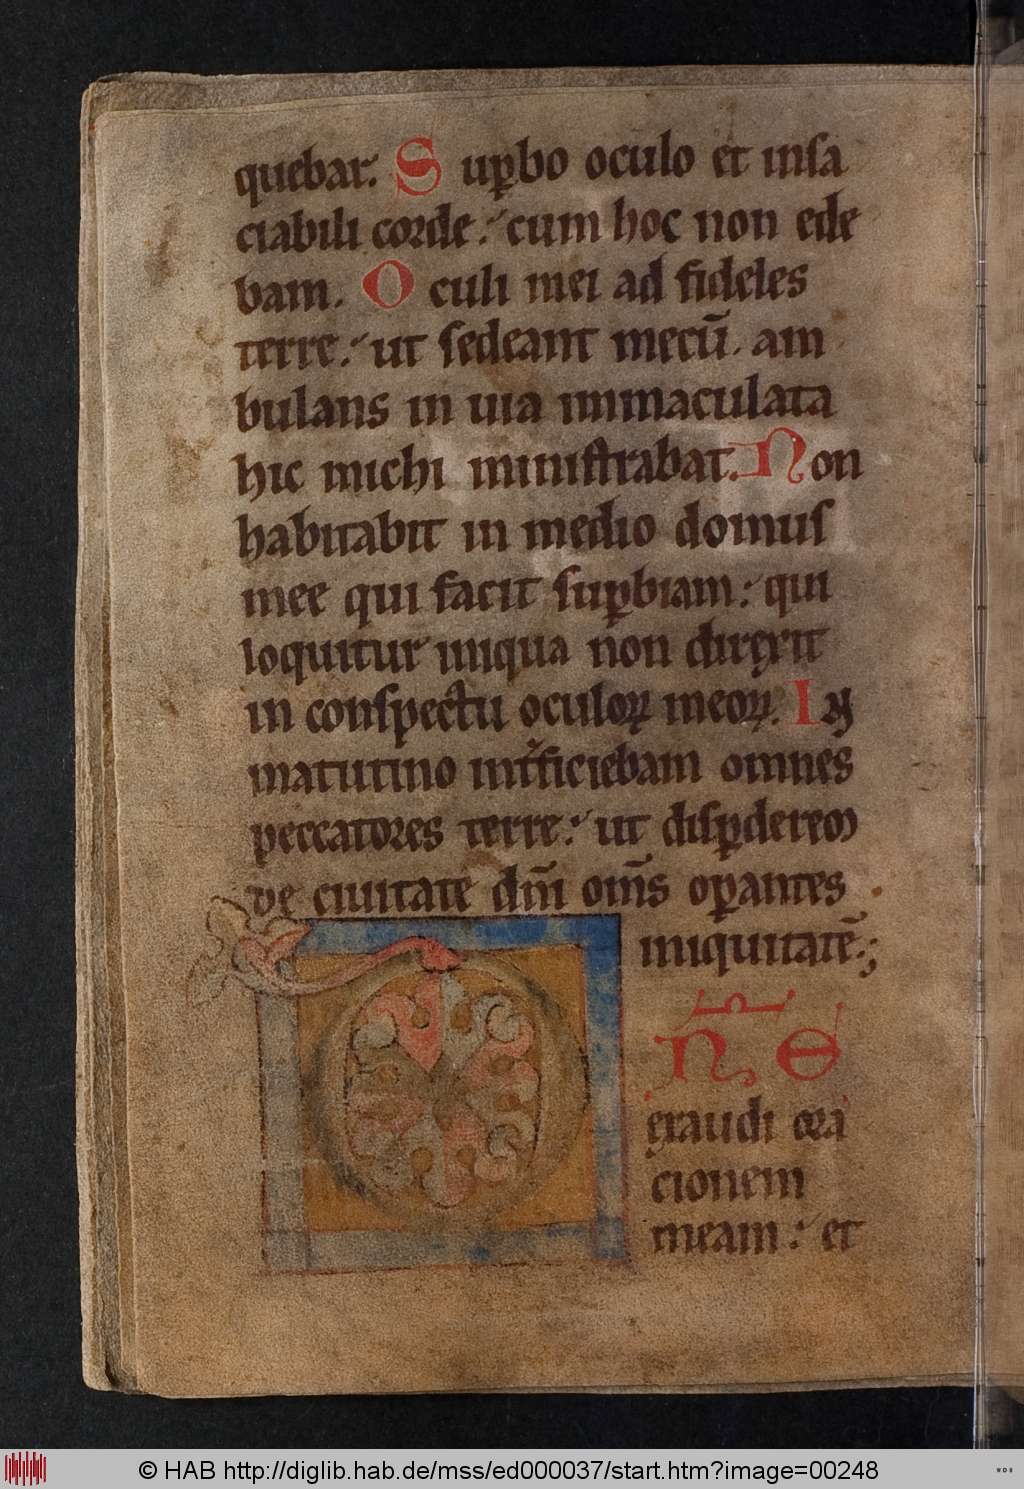 quebar. Sup̱bo oculo et insa
ciabili corde: cum hoc non ede
bam. Oculi mei ad fideles
terre: ut sedeant mecū. am
bulans in uia immaculata
hic michi ministrabat. Non
habitabit in medio domus
mee qui facit sup̱biam: qui
loquitur iniqua non direxit
in conspectu oculoꝝ meoꝝ. In
matutino int̉ficiebam omnes
peccatores terre: ut disp̱derem
de ciuitate dn̄i om̄s op̱antes
iniquitatē.;
D N E
exaudi ora
cionem
meam: et
© HAB http://diglib.hab.de/mss/ed000037/start.htm?image=00248